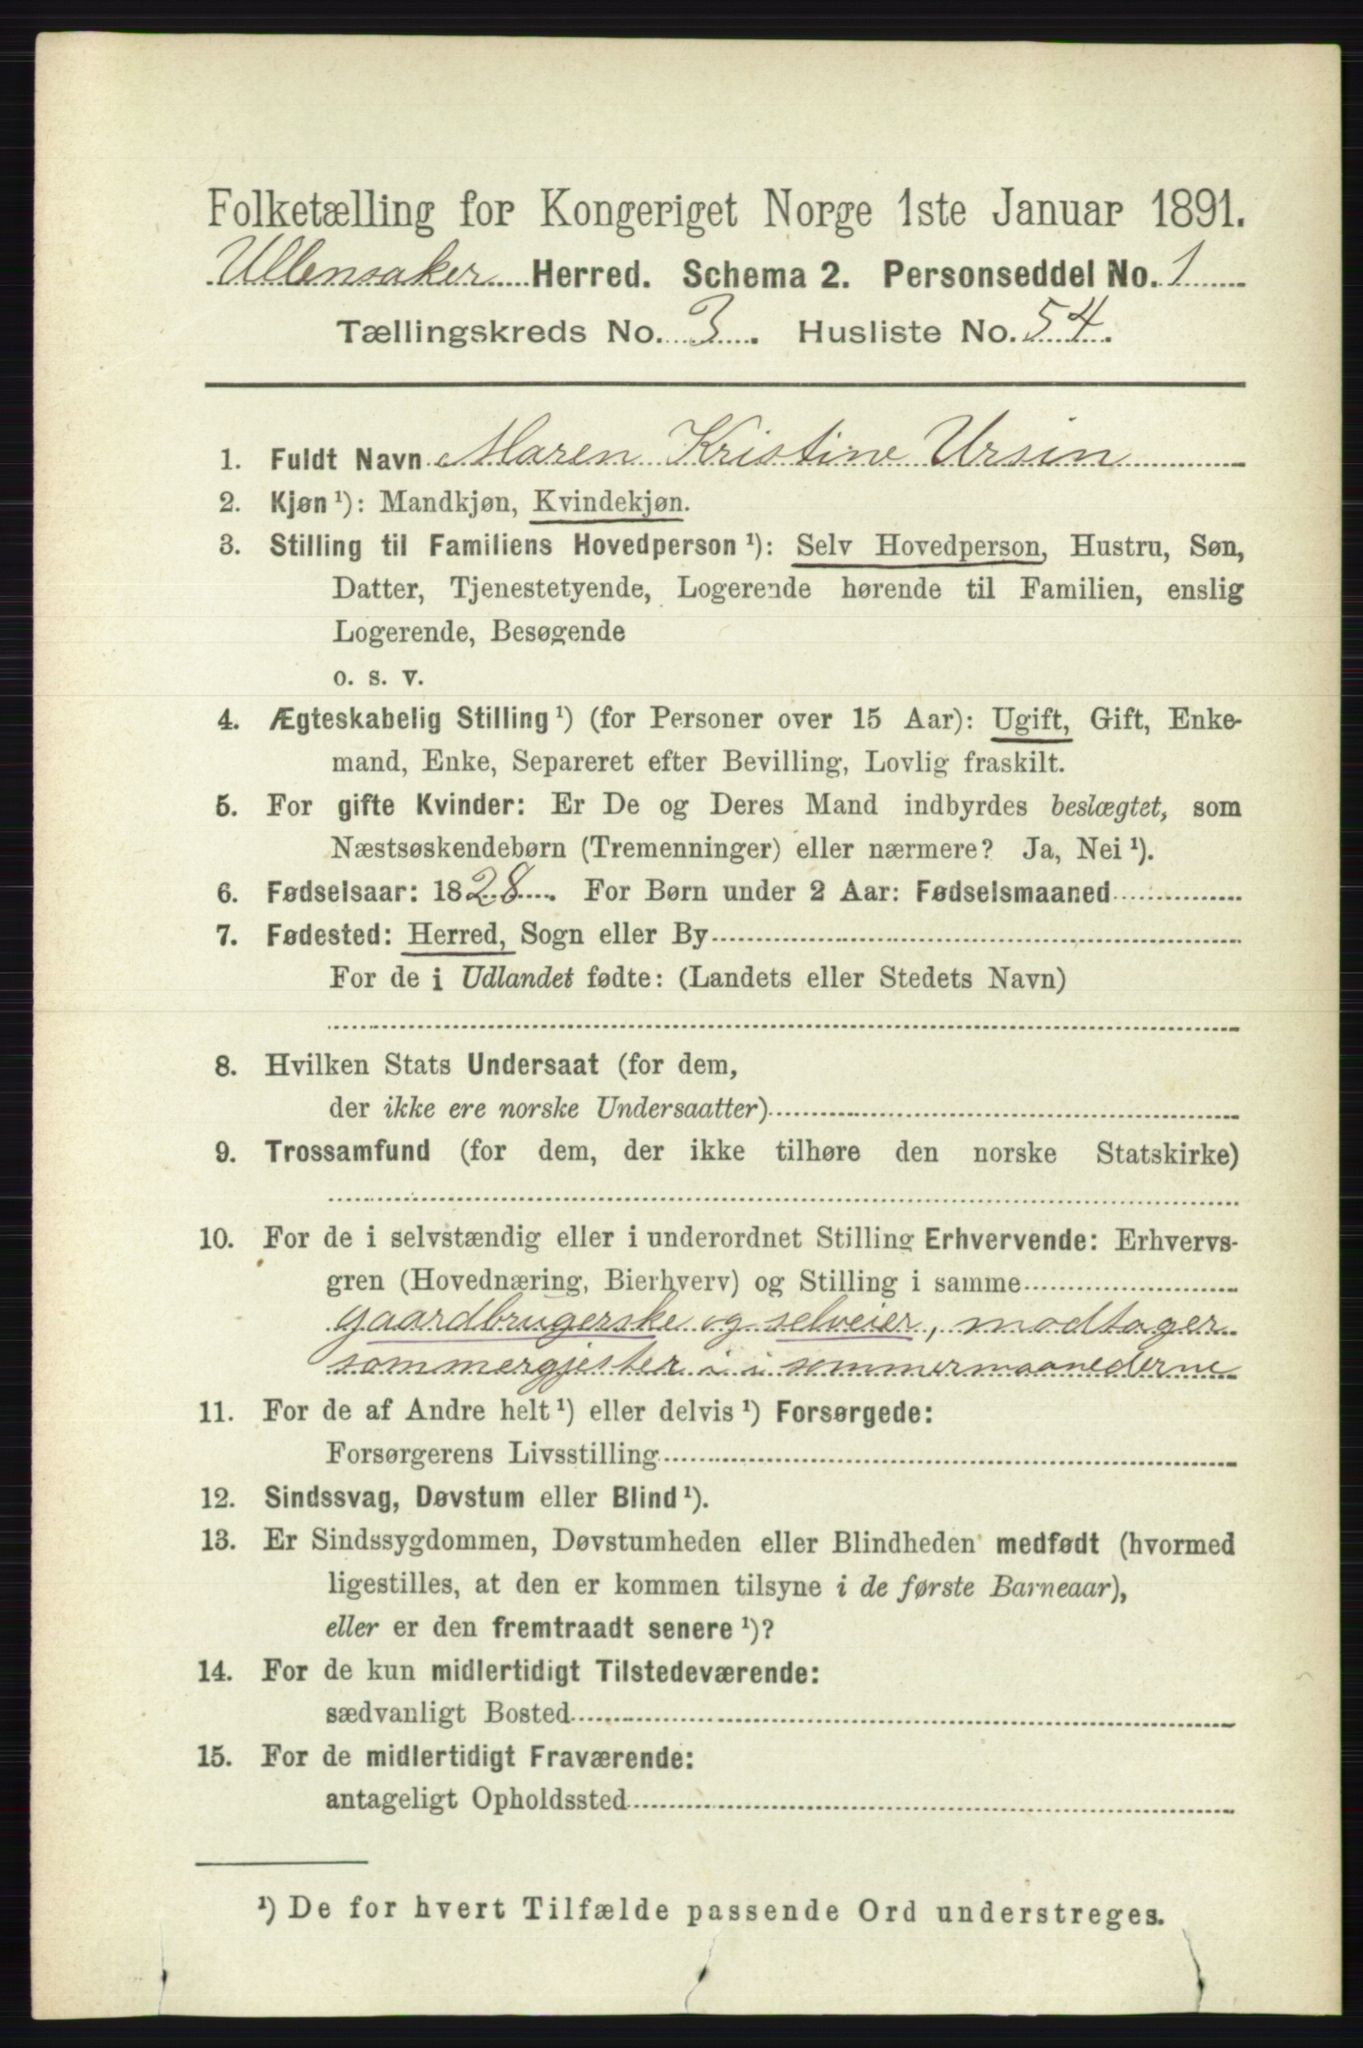 Folketælling for Kongeriget Norge 1ste Januar 1891.
Ullensaker Herred. Schema 2. Personseddel No. 1
Tællingskreds No. 3. Husliste No. 54.
1. Fuldt Navn Maren Kristine Ursin
2. Kjøn ¹): Mandkjøn, Kvindekjøn.
3. Stilling til Familiens Hovedperson ¹): Selv Hovedperson, Hustru, Søn,
Datter, Tjenestetyende, Logerende hørende til Familien, enslig
Logerende, Besøgende
o. s. v.
4. Ægteskabelig Stilling ¹) (for Personer over 15 Aar): Ugift, Gift, Enke-
mand, Enke, Separeret efter Bevilling, Lovlig fraskilt.
5. For gifte Kvinder: Er De og Deres Mand indbyrdes beslægtet, som
Næstsøskendebørn (Tremenninger) eller nærmere? Ja, Nei ¹).
6. Fødselsaar: 1828. For Børn under 2 Aar: Fødselsmaaned
7. Fødested: Herred, Sogn eller By
For de i Udlandet fødte: (Landets eller Stedets Navn)
8. Hvilken Stats Undersaat (for dem,
der ikke ere norske Undersaatter)
9. Trossamfund (for dem, der ikke tilhøre den norske Statskirke)
10. For de i selvstændig eller i underordnet Stilling Erhvervende: Erhvervs-
gren (Hovednæring, Bierhverv) og Stilling i samme
gaardbrugerske og selveier, modtager
sommergjester i sommermaanederne
11. For de af Andre helt ¹) eller delvis ¹) Forsørgede:
Forsørgerens Livsstilling
12. Sindssvag, Døvstum eller Blind ¹).
13. Er Sindssygdommen, Døvstumheden eller Blindheden medfødt (hvormed
ligestilles, at den er kommen tilsyne i de første Barneaar),
eller er den fremtraadt senere ¹)?
14. For de kun midlertidigt Tilstedeværende:
sædvanligt Bosted
15. For de midlertidigt Fraværende:
antageligt Opholdssted
¹) De for hvert Tilfælde passende Ord understreges.